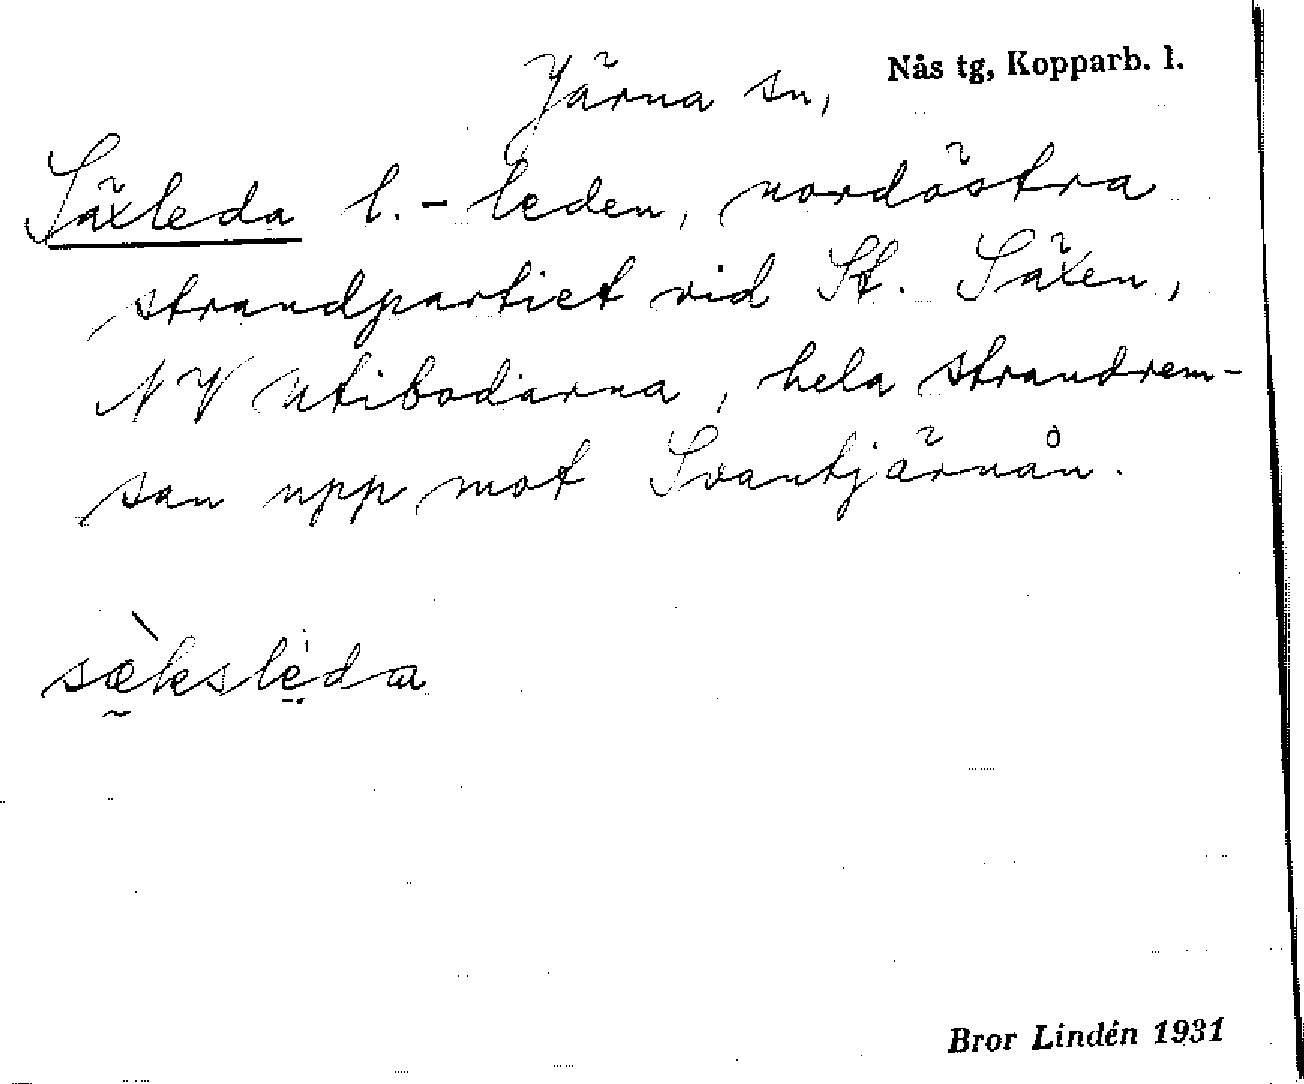 Järna sn, Nås tg, Kopparb. l.
Säxleda l. -leden, nordöstra
strandpartiet vid St. Säxen,
NV Utibodarna, hela strandrem-
san upp mot Svantjärnån.
sæ̀ksleda
Bror Lindén 1931